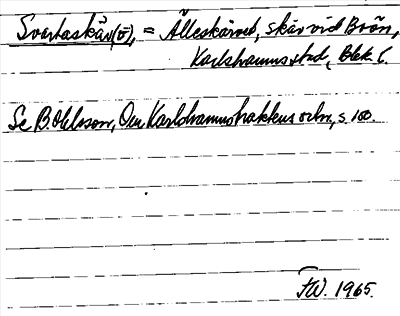 Svartaskär(ö), = Älleskäret, skär vid Boön,
Karlshamns stad, Blek. l.
Se B. Ohlsson, Om Karlshamnstraktens ortn, s. 100.
FW. 1965.